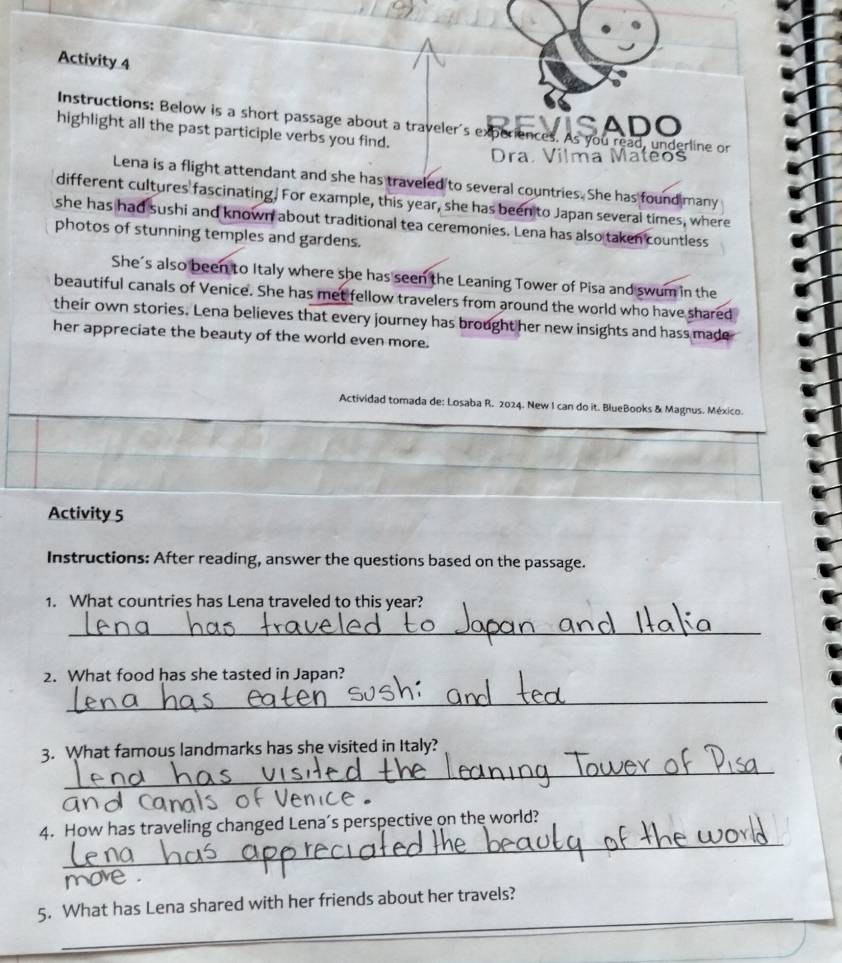 Activity 4
REVISADO
Dra. Vilma Mateos
Instructions: Below is a short passage about a traveler's experiences. As you read, underline or
highlight all the past participle verbs you find.
Lena is a flight attendant and she has traveled to several countries. She has found many
different cultures fascinating. For example, this year, she has been to Japan several times, where
she has had sushi and known about traditional tea ceremonies. Lena has also taken countless
photos of stunning temples and gardens.
She's also been to Italy where she has seen the Leaning Tower of Pisa and swum in the
beautiful canals of Venice. She has met fellow travelers from around the world who have shared
their own stories. Lena believes that every journey has brought her new insights and hass made
her appreciate the beauty of the world even more.
Actividad tomada de: Losaba R. 2024. New I can do it. BlueBooks & Magnus. México.
Activity 5
Instructions: After reading, answer the questions based on the passage.
1. What countries has Lena traveled to this year?
Lena has traveled to Japan and Italia
2. What food has she tasted in Japan?
Lena has eaten sushi and tea
3. What famous landmarks has she visited in Italy?
Lena has visited the leaning Tower of Pisa
and canals of Venice.
4. How has traveling changed Lena's perspective on the world?
Lena has appreciated the beauty of the world
more.
5. What has Lena shared with her friends about her travels?